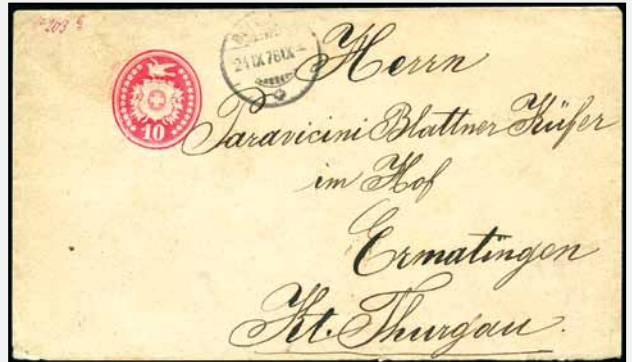 203
24 IX 76 IX
10
Herrn
Paravicini Blattner Küfer
im Hof
Ermatingen
Kt. Thurgau.